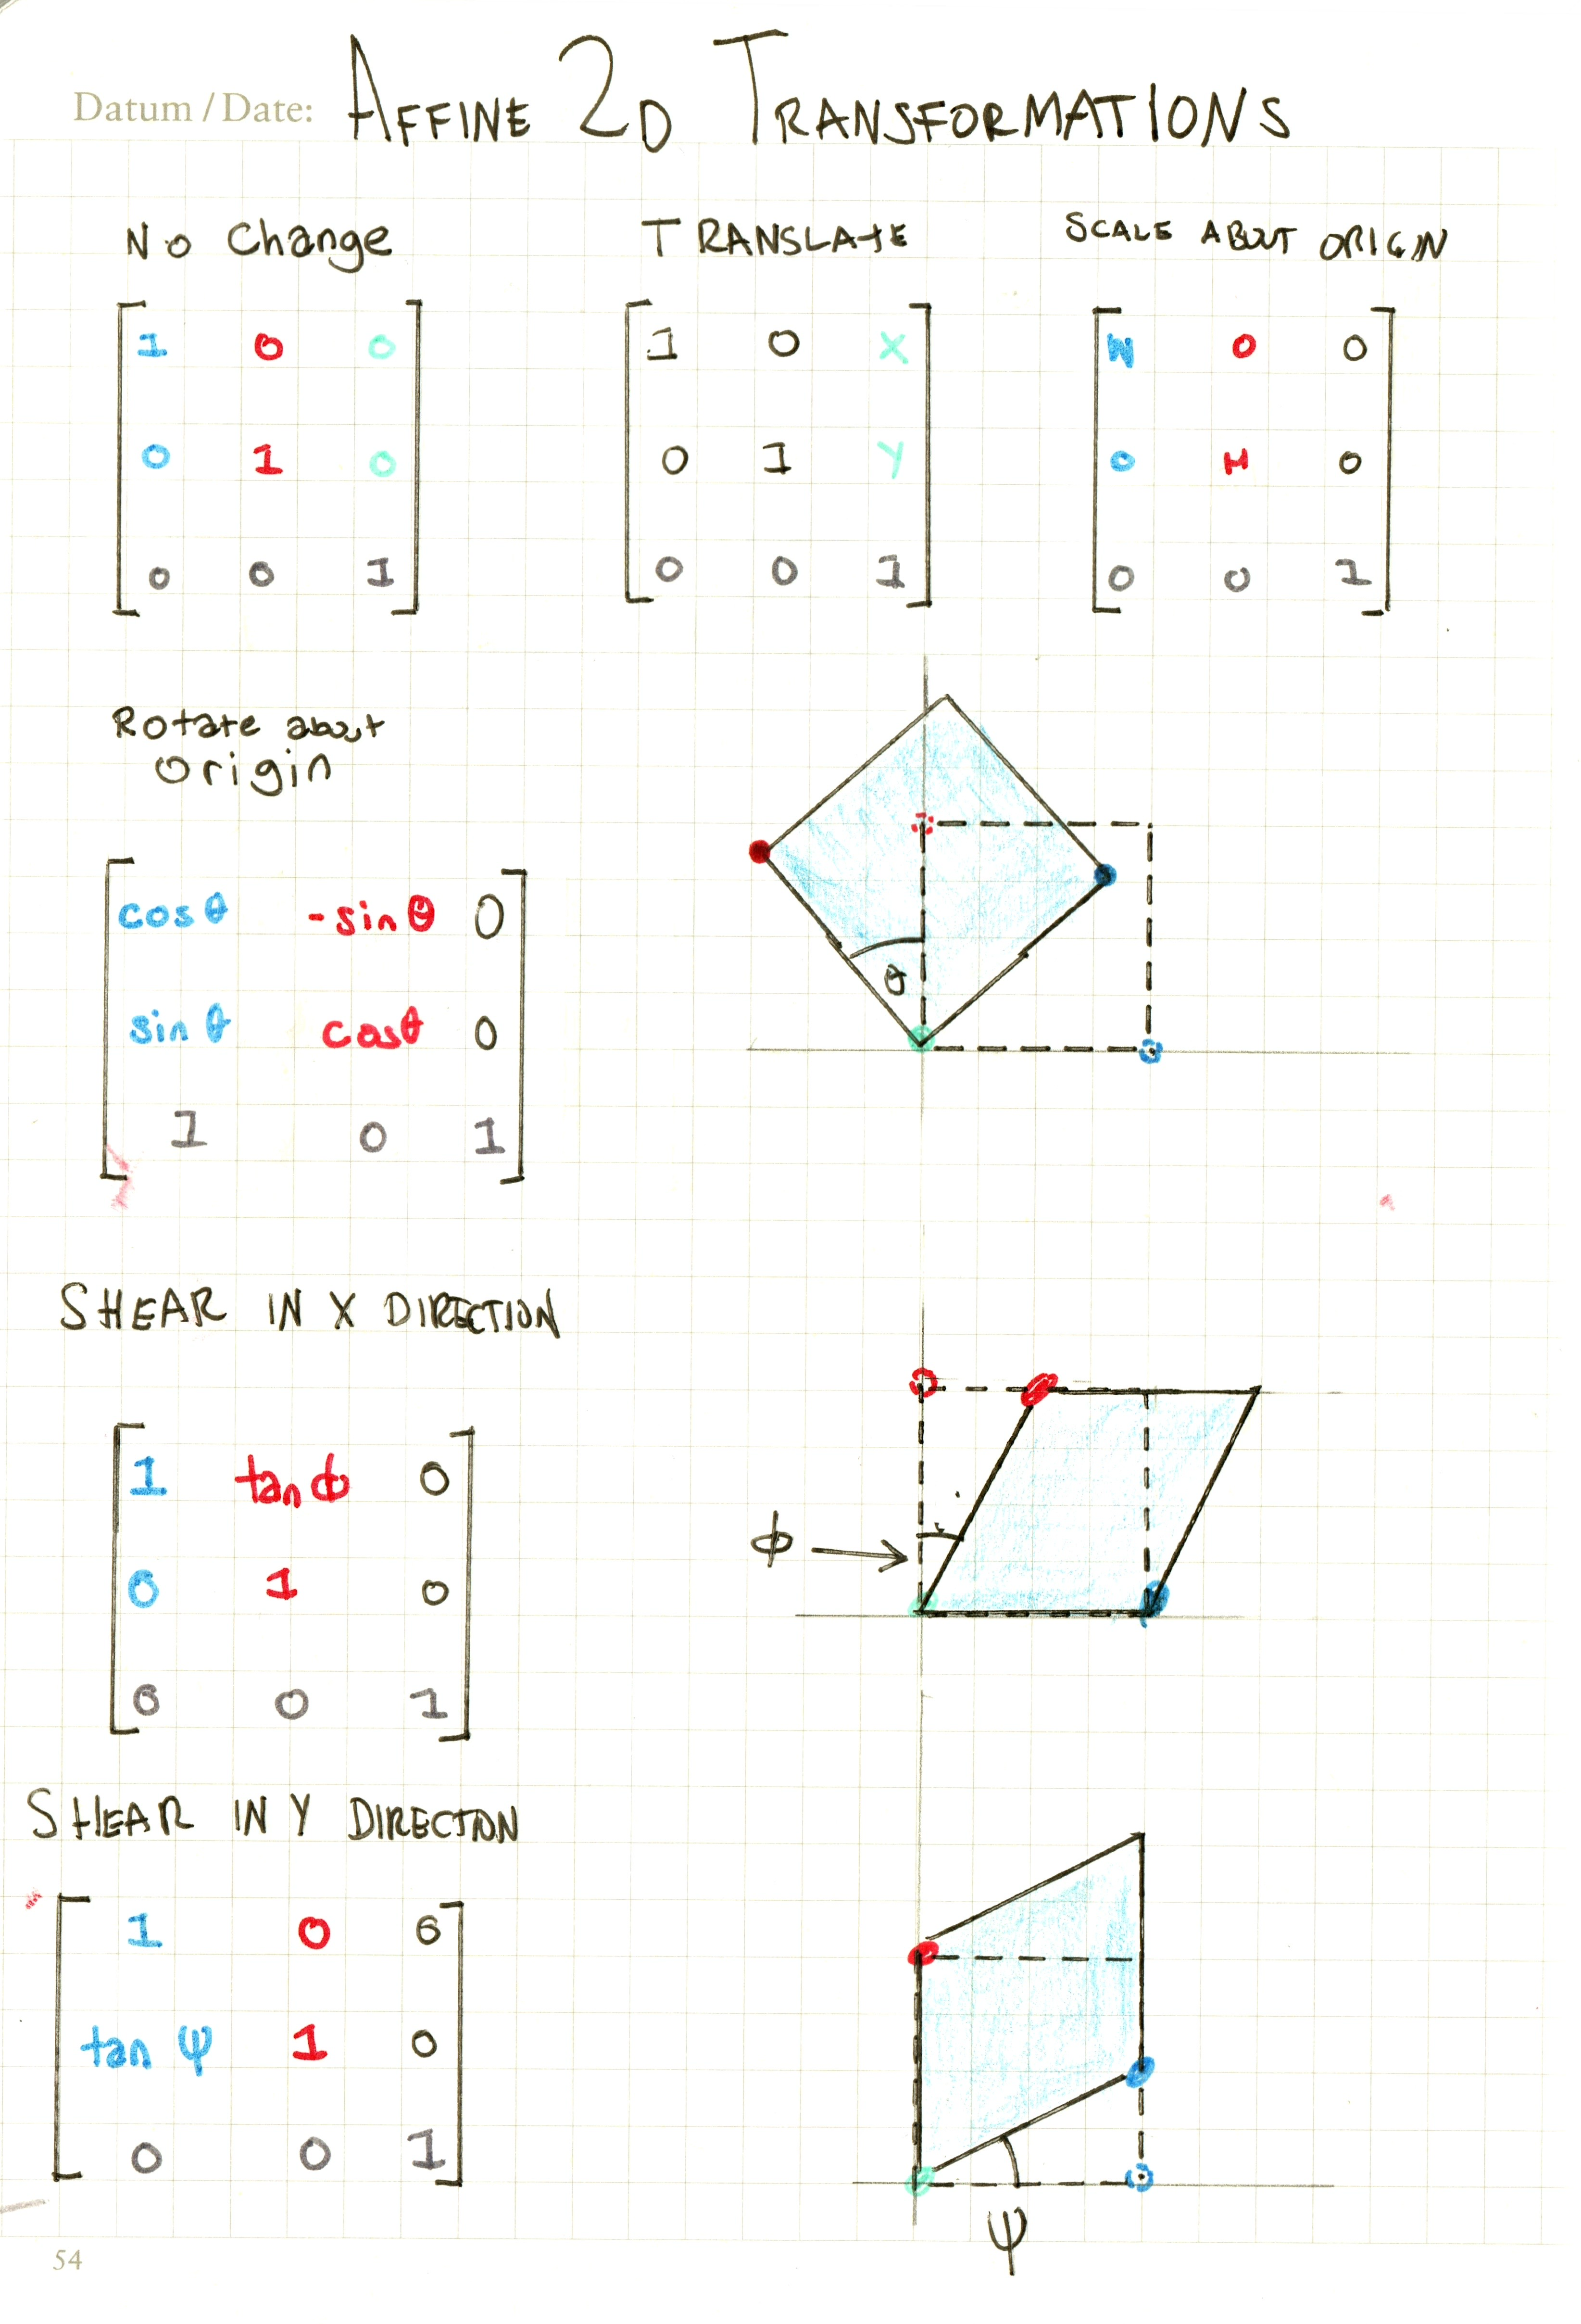 Datum / Date: AFFINE 2D TRANSFORMATIONS
No Change
1 0 0
0 1 0
0 0 1
TRANSLATE
1 0 X
0 1 Y
0 0 1
SCALE ABOUT ORIGIN
W 0 0
0 H 0
0 0 1
Rotate about
origin
cos θ -sin θ 0
sin θ cos θ 0
1 0 1
θ
SHEAR IN X DIRECTION
1 tan ϕ 0
0 1 0
0 0 1
ϕ
SHEAR IN Y DIRECTION
1 0 0
tan ψ 1 0
0 0 1
ψ
54